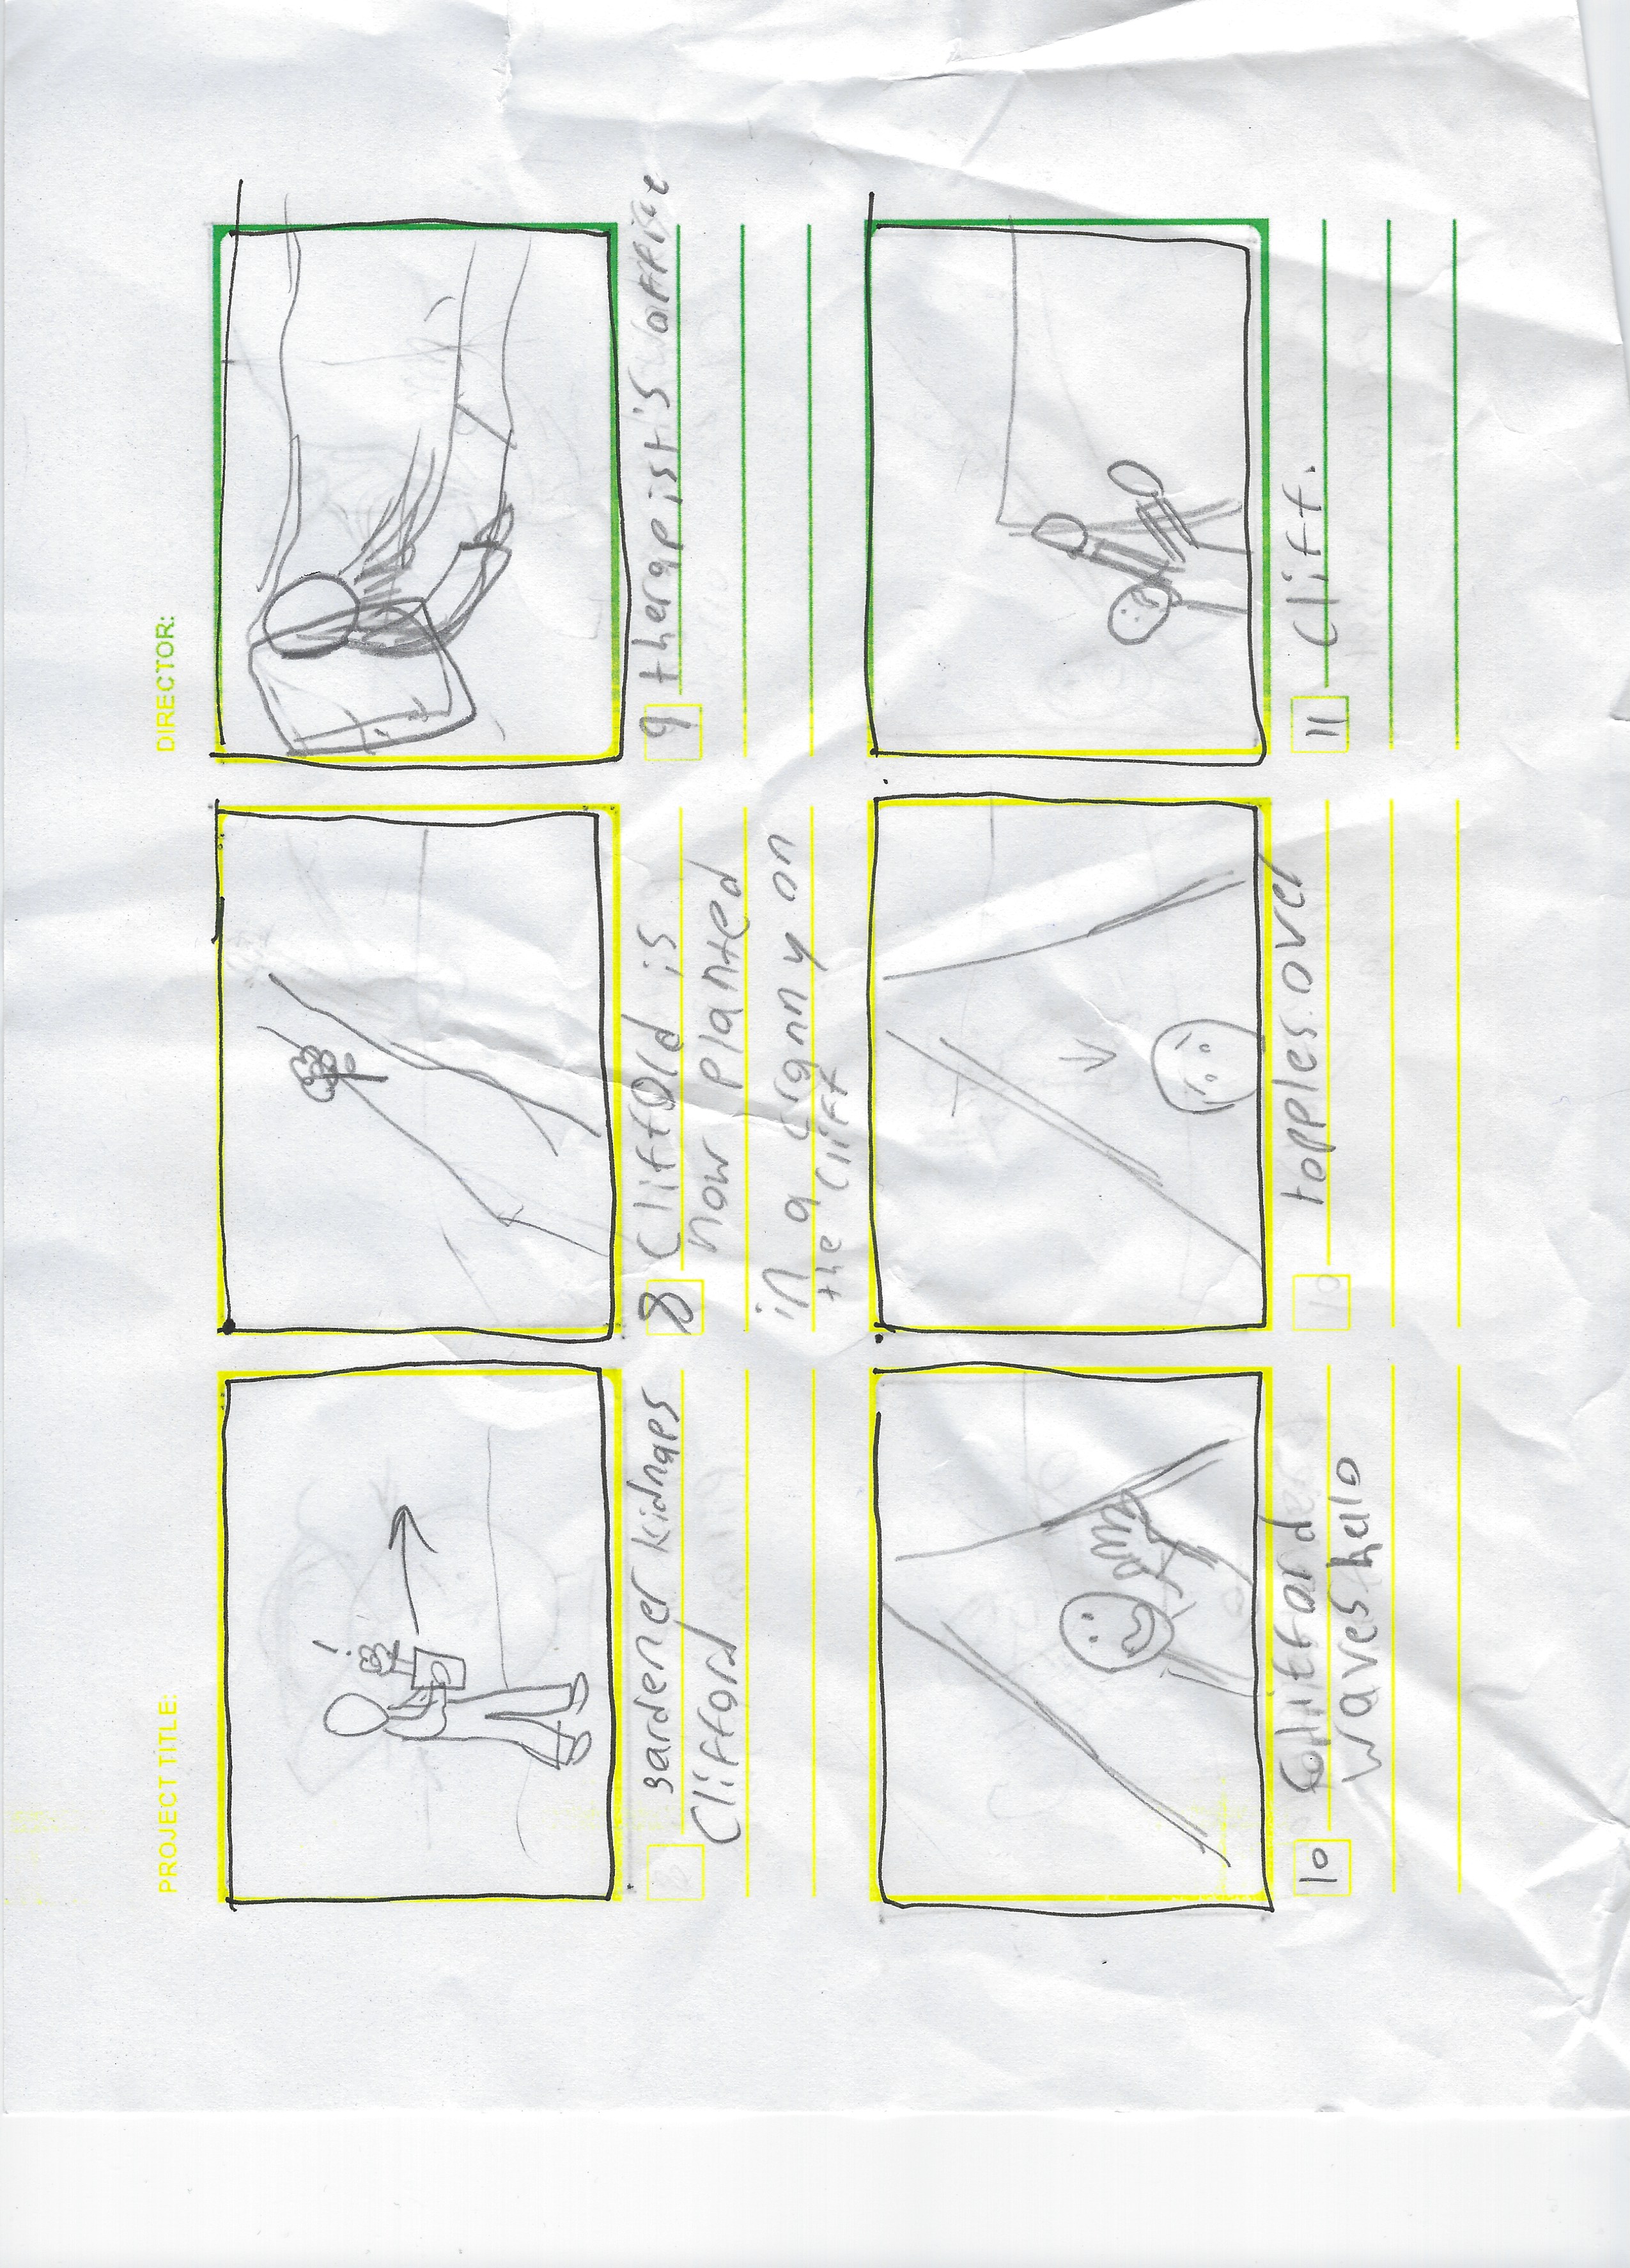 PROJECT TITLE:
DIRECTOR:
gardener kidnaps
Clifford
8 Cliffold is
now planted
in a cranny on
the Cliff
9 therapist's office
10 Cliffard
waves hello
10 topples over
11 Clift.